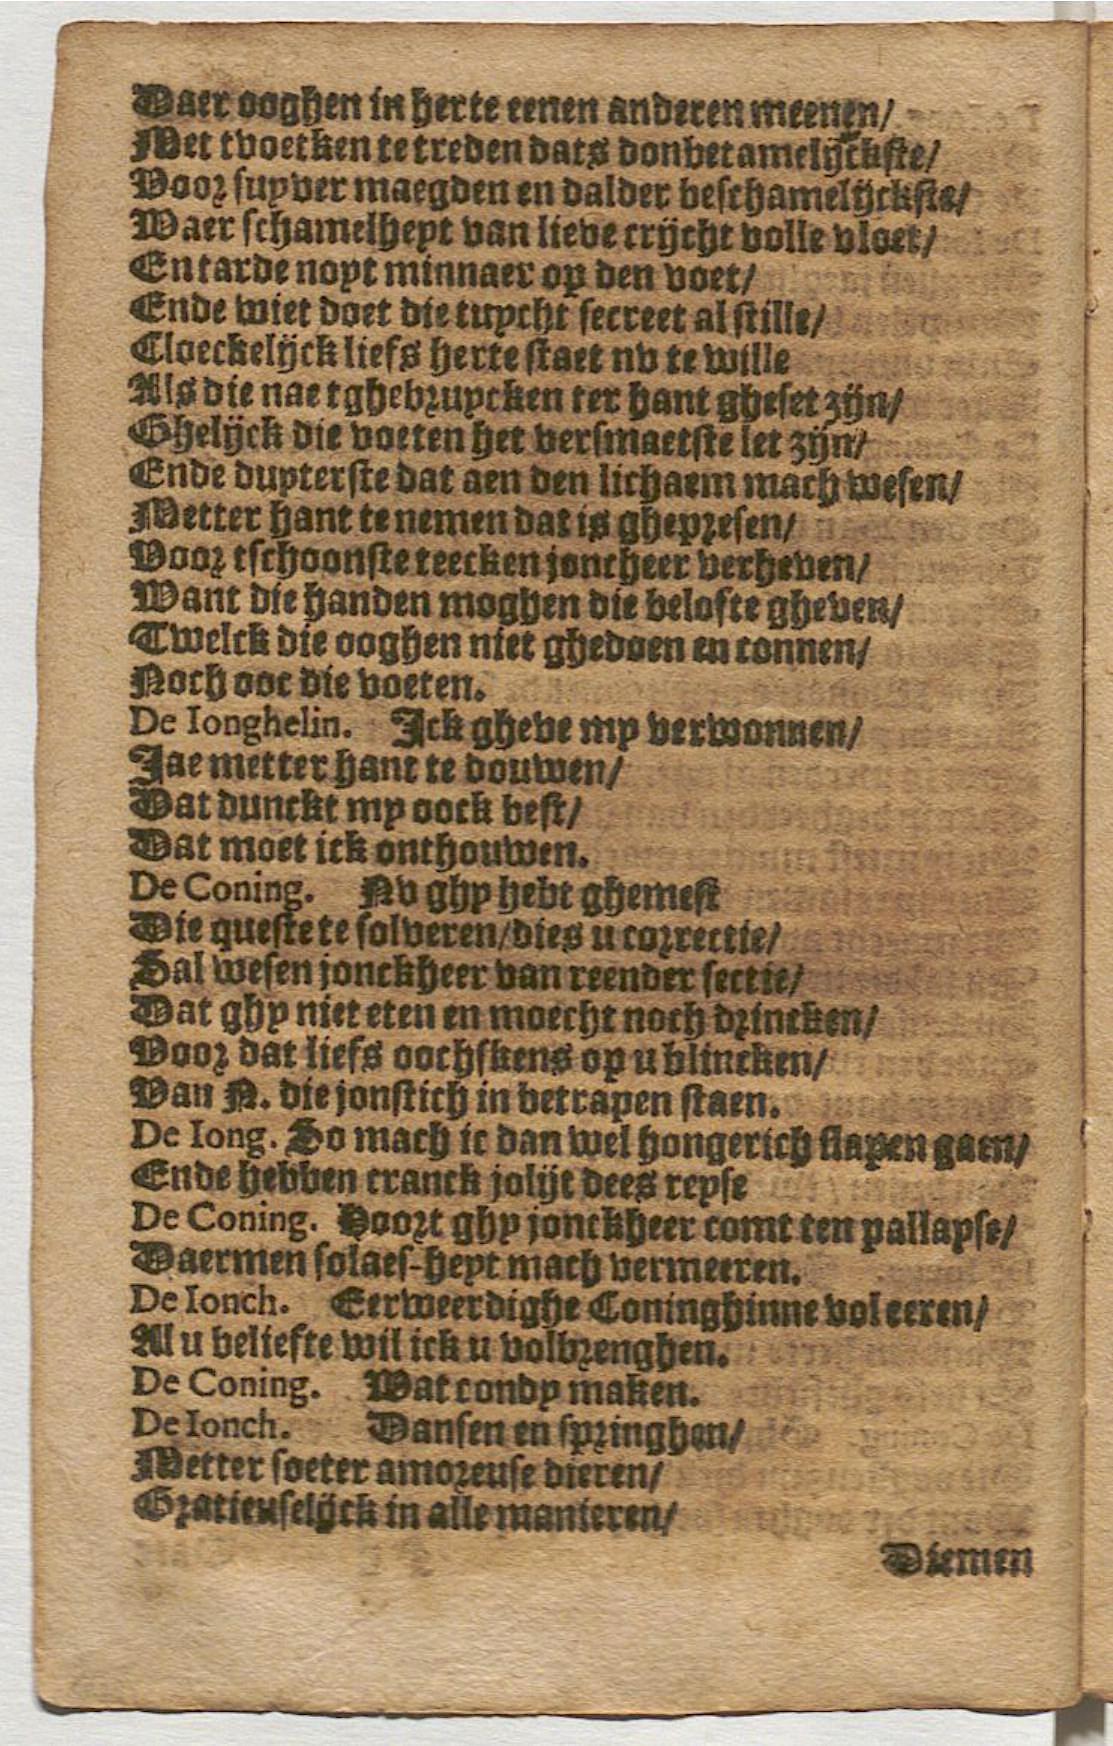 Daer ooghen in herte eenen anderen meenen/
Met tvoetken te treden dats donbetamelijckste/
Voor suyver maegden en dalder beschamelijckste/
Waer schamelheyt van lieve crijcht volle vloet/
En tarde noyt minnaer op den voet/
Ende wiet doet die tuycht secreet al stille/
Cloeckelijck liefs herte staet nv te wille
Als die nae tghebruycken ter hant gheset zijn/
Ghelijck die voeten het versmaetste let zijn/
Ende duyterste dat aen den lichaem mach wesen/
Metter hant te nemen dat is ghepresen/
Voor tschoonste teecken joncheer verheven/
Want die handen moghen die belofte gheven/
Twelck die ooghen niet ghedoen en connen/
Noch ooc die voeten.
De Ionghelin. Ick gheve my verwonnen/
Jae metter hant te douwen/
Dat dunckt my oock best/
Dat moet ick onthouwen.
De Coning. Nv ghy hebt ghemest
Die queste te solveren/dies u correctie/
Sal wesen jonckheer van reender sectie/
Dat ghy niet eten en moecht noch drincken/
Voor dat liefs oochskens op u blincken/
Van N. die jonstich in betrapen staen.
De Iong. So mach ic dan wel hongerich slapen gaen/
Ende hebben cranck jolijt dees reyse
De Coning. Hoort ghy jonckheer comt ten pallayse/
Daermen solaes-heyt mach vermeeren.
De Ionch. Eerweerdighe Coninghinne vol eeren/
Al u beliefte wil ick u volbrenghen.
De Coning. Wat condy maken.
De Ionch. Dansen en springhen/
Metter soeter amoreuse dieren/
Gratieuselijck in alle manieren/
Diemen